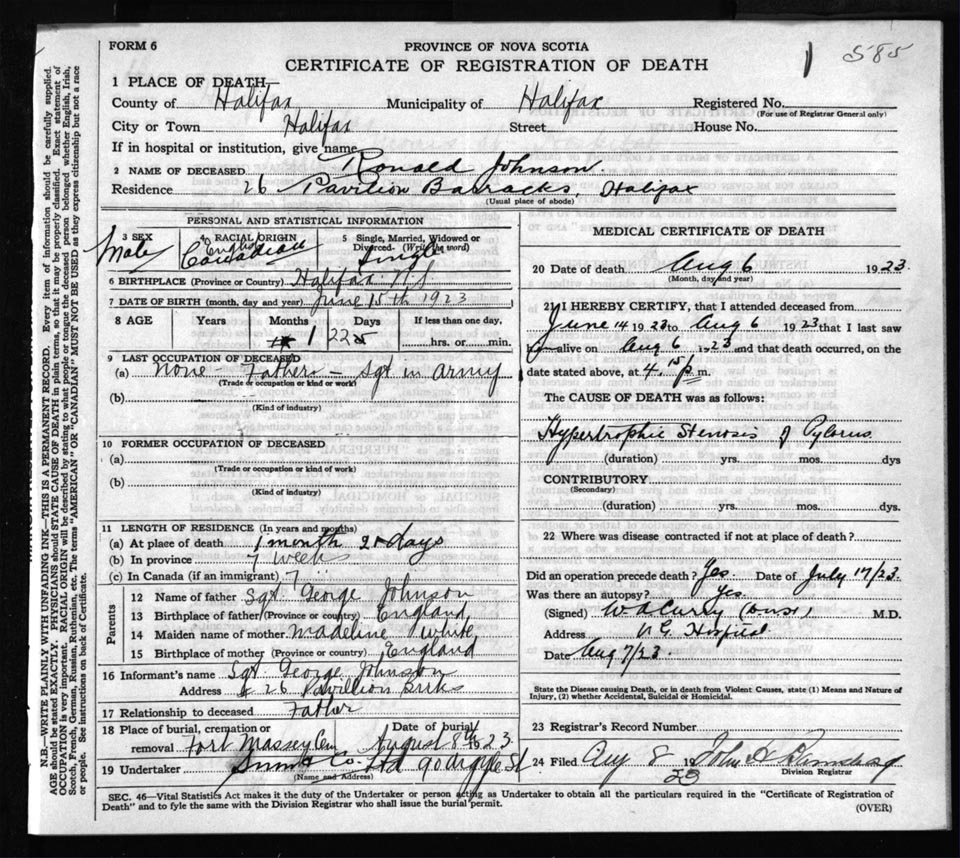 FORM 6
PROVINCE OF NOVA SCOTIA
CERTIFICATE OF REGISTRATION OF DEATH
1 585
1 PLACE OF DEATH—
County of Halifax Municipality of Halifax Registered No.
(For use of Registrar General only)
City or Town Halifax Street House No.
If in hospital or institution, give name
2 NAME OF DECEASED Ronald Johnson.
Residence 26 Pavilion Barracks, Halifax
(Usual place of abode)
PERSONAL AND STATISTICAL INFORMATION
3 SEX 4 RACIAL ORIGIN 5 Single, Married, Widowed or Divorced. (Write the word)
Male English Canadian Single
6 BIRTHPLACE (Province or Country) Halifax N.S
7 DATE OF BIRTH (month, day and year) June 15th 1923
8 AGE Years Months Days If less than one day,
1 22 hrs. or min.
9 LAST OCCUPATION OF DECEASED
(a) None - Father - Sgt in Army
(Trade or occupation or kind or work)
(b)
(Kind of industry)
10 FORMER OCCUPATION OF DECEASED
(a)
(Trade or occupation or kind of work)
(b)
(Kind of industry)
11 LENGTH OF RESIDENCE (In years and months)
(a) At place of death 1 month days
(b) In province 7 weeks
(c) In Canada (if an immigrant) 7
Parents
12 Name of father Sgt. George Johnson
13 Birthplace of father (Province or country) England
14 Maiden name of mother Madeline White
15 Birthplace of mother (Province or country) England
16 Informant's name Sgt George Johnson
Address 26 Pavillion Brks
17 Relationship to deceased Father
18 Place of burial, cremation or removal Fort Massey Cem Date of burial August 8th 23
19 Undertaker Snow & Co. Ltd 90 Argyle St
(Name and Address)
MEDICAL CERTIFICATE OF DEATH
20 Date of death Aug 6 1923.
(Month, day and year)
21 I HEREBY CERTIFY, that I attended deceased from
June 14 1923 to Aug 6 1923 that I last saw
h alive on Aug 6 1923 and that death occurred, on the
date stated above, at 4.15 p m.
The CAUSE OF DEATH was as follows:
Hypertrophic Stenosis of Pylorus
(duration) yrs. mos. dys
CONTRIBUTORY
(Secondary)
(duration) yrs. mos. dys.
22 Where was disease contracted if not at place of death?
Did an operation precede death? Yes Date of July 17/23.
Was there an autopsy? Yes.
(Signed) W D Curry M.D.
Address Hospital
Date Aug 7/23
State the Disease causing Death, or in death from Violent Causes, state (1) Means and Nature of Injury, (2) whether Accidental, Suicidal or Homicidal.
23 Registrar's Record Number
24 Filed Aug 8 1923 John A
Division Registrar
SEC. 46—Vital Statistics Act makes it the duty of the Undertaker or person acting as Undertaker to obtain all the particulars required in the "Certificate of Registration of
Death" and to fyle the same with the Division Registrar who shall issue the burial permit.
(OVER)
N.B.—WRITE PLAINLY WITH UNFADING INK—THIS IS A PERMANENT RECORD. Every item of information should be carefully supplied.
AGE should be stated EXACTLY. PHYSICIANS should STATE CAUSE OF DEATH in plain terms, so that it may be properly classified. Exact statement of
OCCUPATION is very important. RACIAL ORIGIN will be described by stating to what people or tongue the deceased person belonged whether English, Irish,
Scotch, French, German, Russian, Ruthenian, etc. The terms "AMERICAN" OR "CANADIAN" MUST NOT BE USED as they express citizenship but not a race
or people. See instructions on back of Certificate.